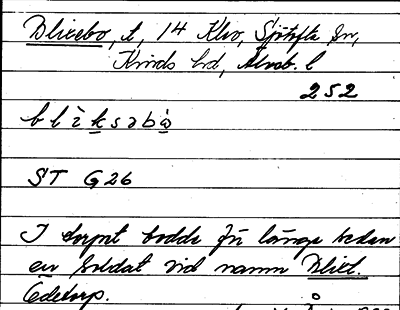 Blixebo, t, 14 Klvo, Sjötofta sn,
Kinds hd, Älvsb. l
252
b l i̇̀ k s ə b ò
ST G26
I torpet bodde för länge sedan
en soldat vid namn Blixt.